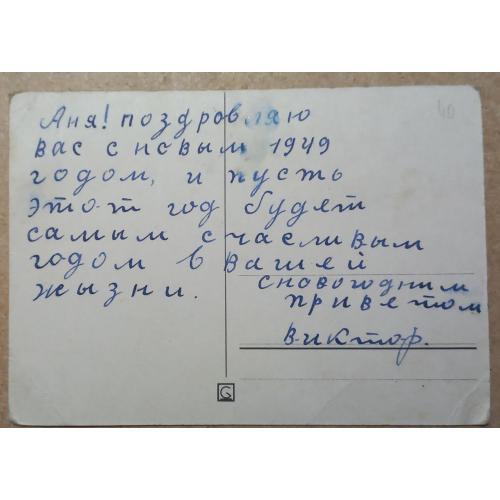 Аня! поздровляю
вас с новым 1949
годом, и пусть
этот год будет
самым счасливым
годом в вашей
жызни.
сновогодним
приветом
виктор.
40
G